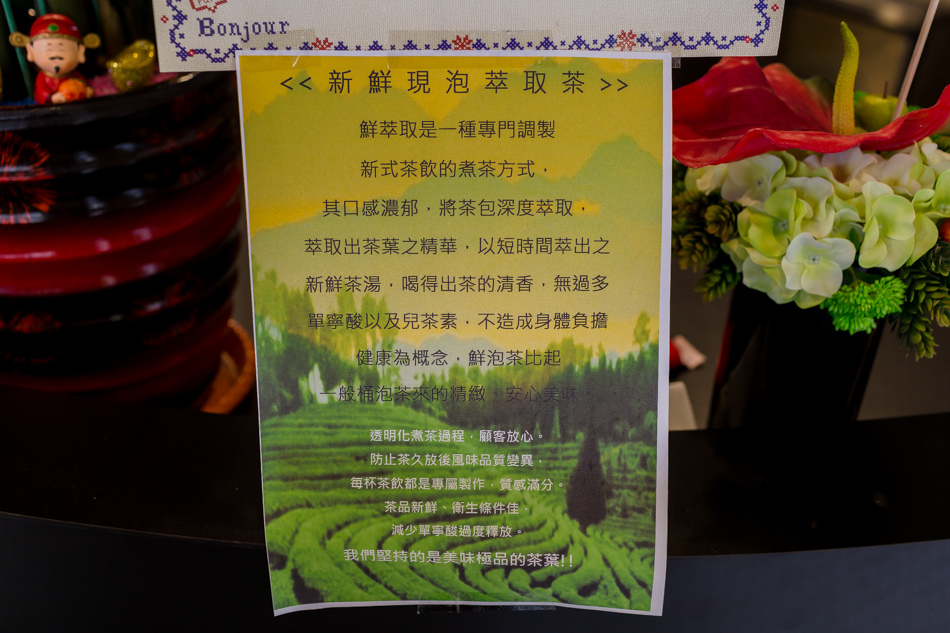 Bonjour
<< 新鮮現泡萃取茶 >>
鮮萃取是一種專門調製
新式茶飲的煮茶方式，
其口感濃郁，將茶包深度萃取，
萃取出茶葉之精華，以短時間萃出之
新鮮茶湯，喝得出茶的清香，無過多
單寧酸以及兒茶素，不造成身體負擔
健康為概念，鮮泡茶比起
一般桶泡茶來的精緻。安心美味。
透明化煮茶過程，顧客放心。
防止茶久放後風味品質變異，
每杯茶飲都是專屬製作，質感滿分。
茶品新鮮、衛生條件佳，
減少單寧酸過度釋放。
我們堅持的是美味極品的茶葉!!